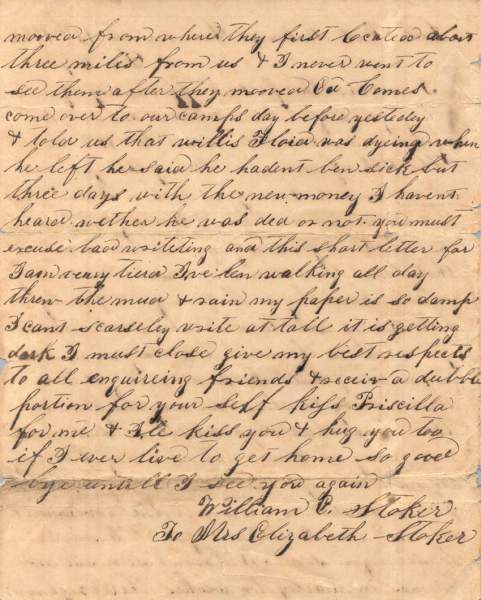 mooved from where they first located about
three miles from us & I never went to
see them after they mooved Ed Comes
come over to our camps day before yestedy
& told us that willis Floid was dyeing when
he left he said he hadent ben sick but
three days with the new money I havent
heard wether he was ded or not you must
excuse bad writeting and this short letter for
I am verry tierd I've ben walking all day
threw the mud & rain my paper is so damp
I cant scarseley write at tall it is getting
dark I must close give my best respects
to all enquireing friends & receiv a dubble
portion for your self kiss Priscilla
for me & Ile kiss you & hug you too
if I ever live to get home so good
bye untill I see you again
William E. Stoker
To Mrs Elizabeth Stoker